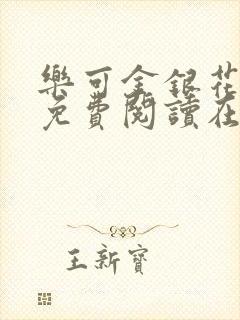 樂可金銀花
免費閱讀在
王新寶